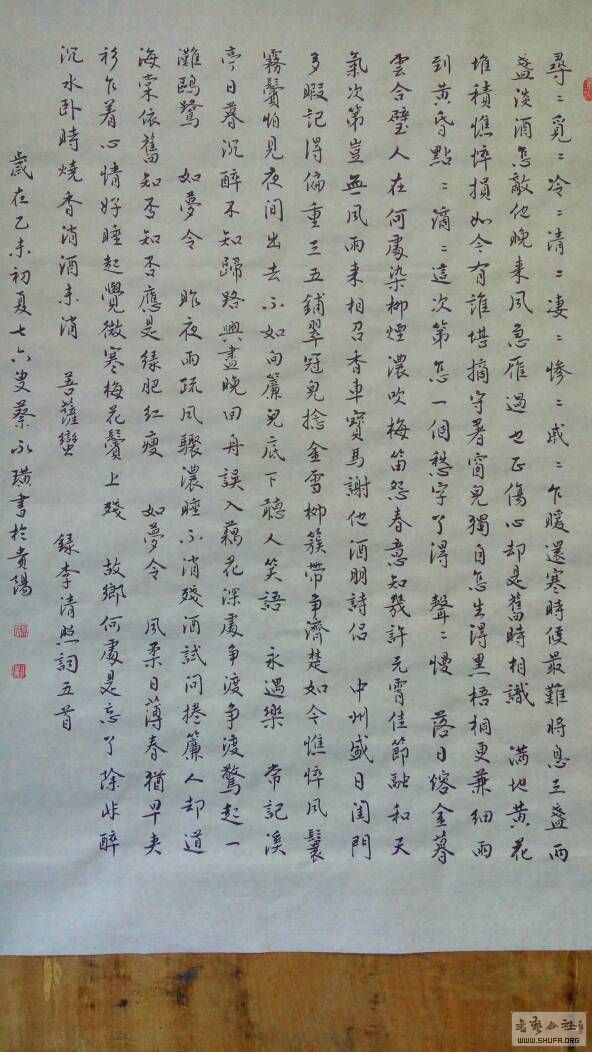 尋〻覓〻冷〻清〻凄〻慘〻戚〻乍暖還寒時候最難將息三盞兩
盞淡酒怎敵他晚來風急雁過也正傷心却是舊時相識 滿地黃花
堆積憔悴損如今有誰堪摘守著窗兒獨自怎生得黑梧桐更兼細雨
到黃昏點〻滴〻這次第怎一個愁字了得 聲〻慢 落日熔金暮
雲合璧人在何處染柳煙濃吹梅笛怨春意知幾許元宵佳節融和天
氣次第豈無風雨來相召香車寶馬謝他酒朋詩侶 中州盛日閨門
多暇記得偏重三五鋪翠冠兒捻金雪柳簇帶爭濟楚如今憔悴風鬟
霧鬢怕見夜間出去不如向簾兒底下聽人笑語 永遇樂 常記溪
亭日暮沉醉不知歸路興盡晚回舟誤入藕花深處爭渡爭渡驚起一
灘鷗鷺 如夢令 昨夜雨疏風驟濃睡不消殘酒試問捲簾人却道
海棠依舊知否知否應是綠肥紅瘦 如夢令 風柔日薄春猶早夾
衫乍着心情好睡起覺微寒梅花鬢上殘 故鄉何處是忘了除非醉
沉水卧時燒香消酒未消 菩薩蠻 錄李清照詞五首
歲在乙未初夏七六叟蔡永璜書於貴陽
書藝公社
WWW.SHUFA.ORG